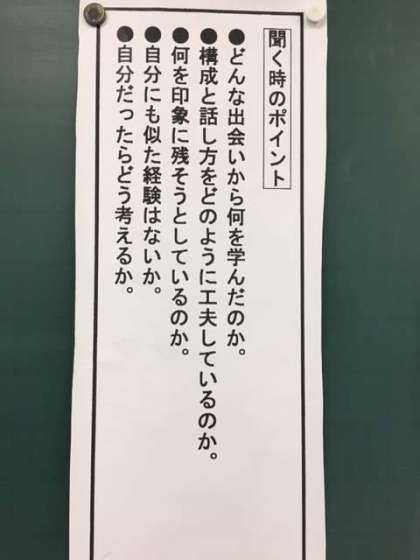 聞く時のポイント
●どんな出会いから何を学んだのか。
●構成と話し方をどのように工夫しているのか。
●何を印象に残そうとしているのか。
●自分にも似た経験はないか。
●自分だったらどう考えるか。